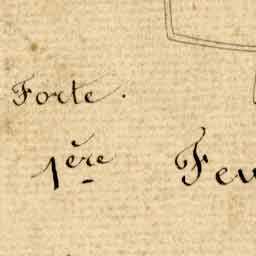 Forte.
1ère Feu